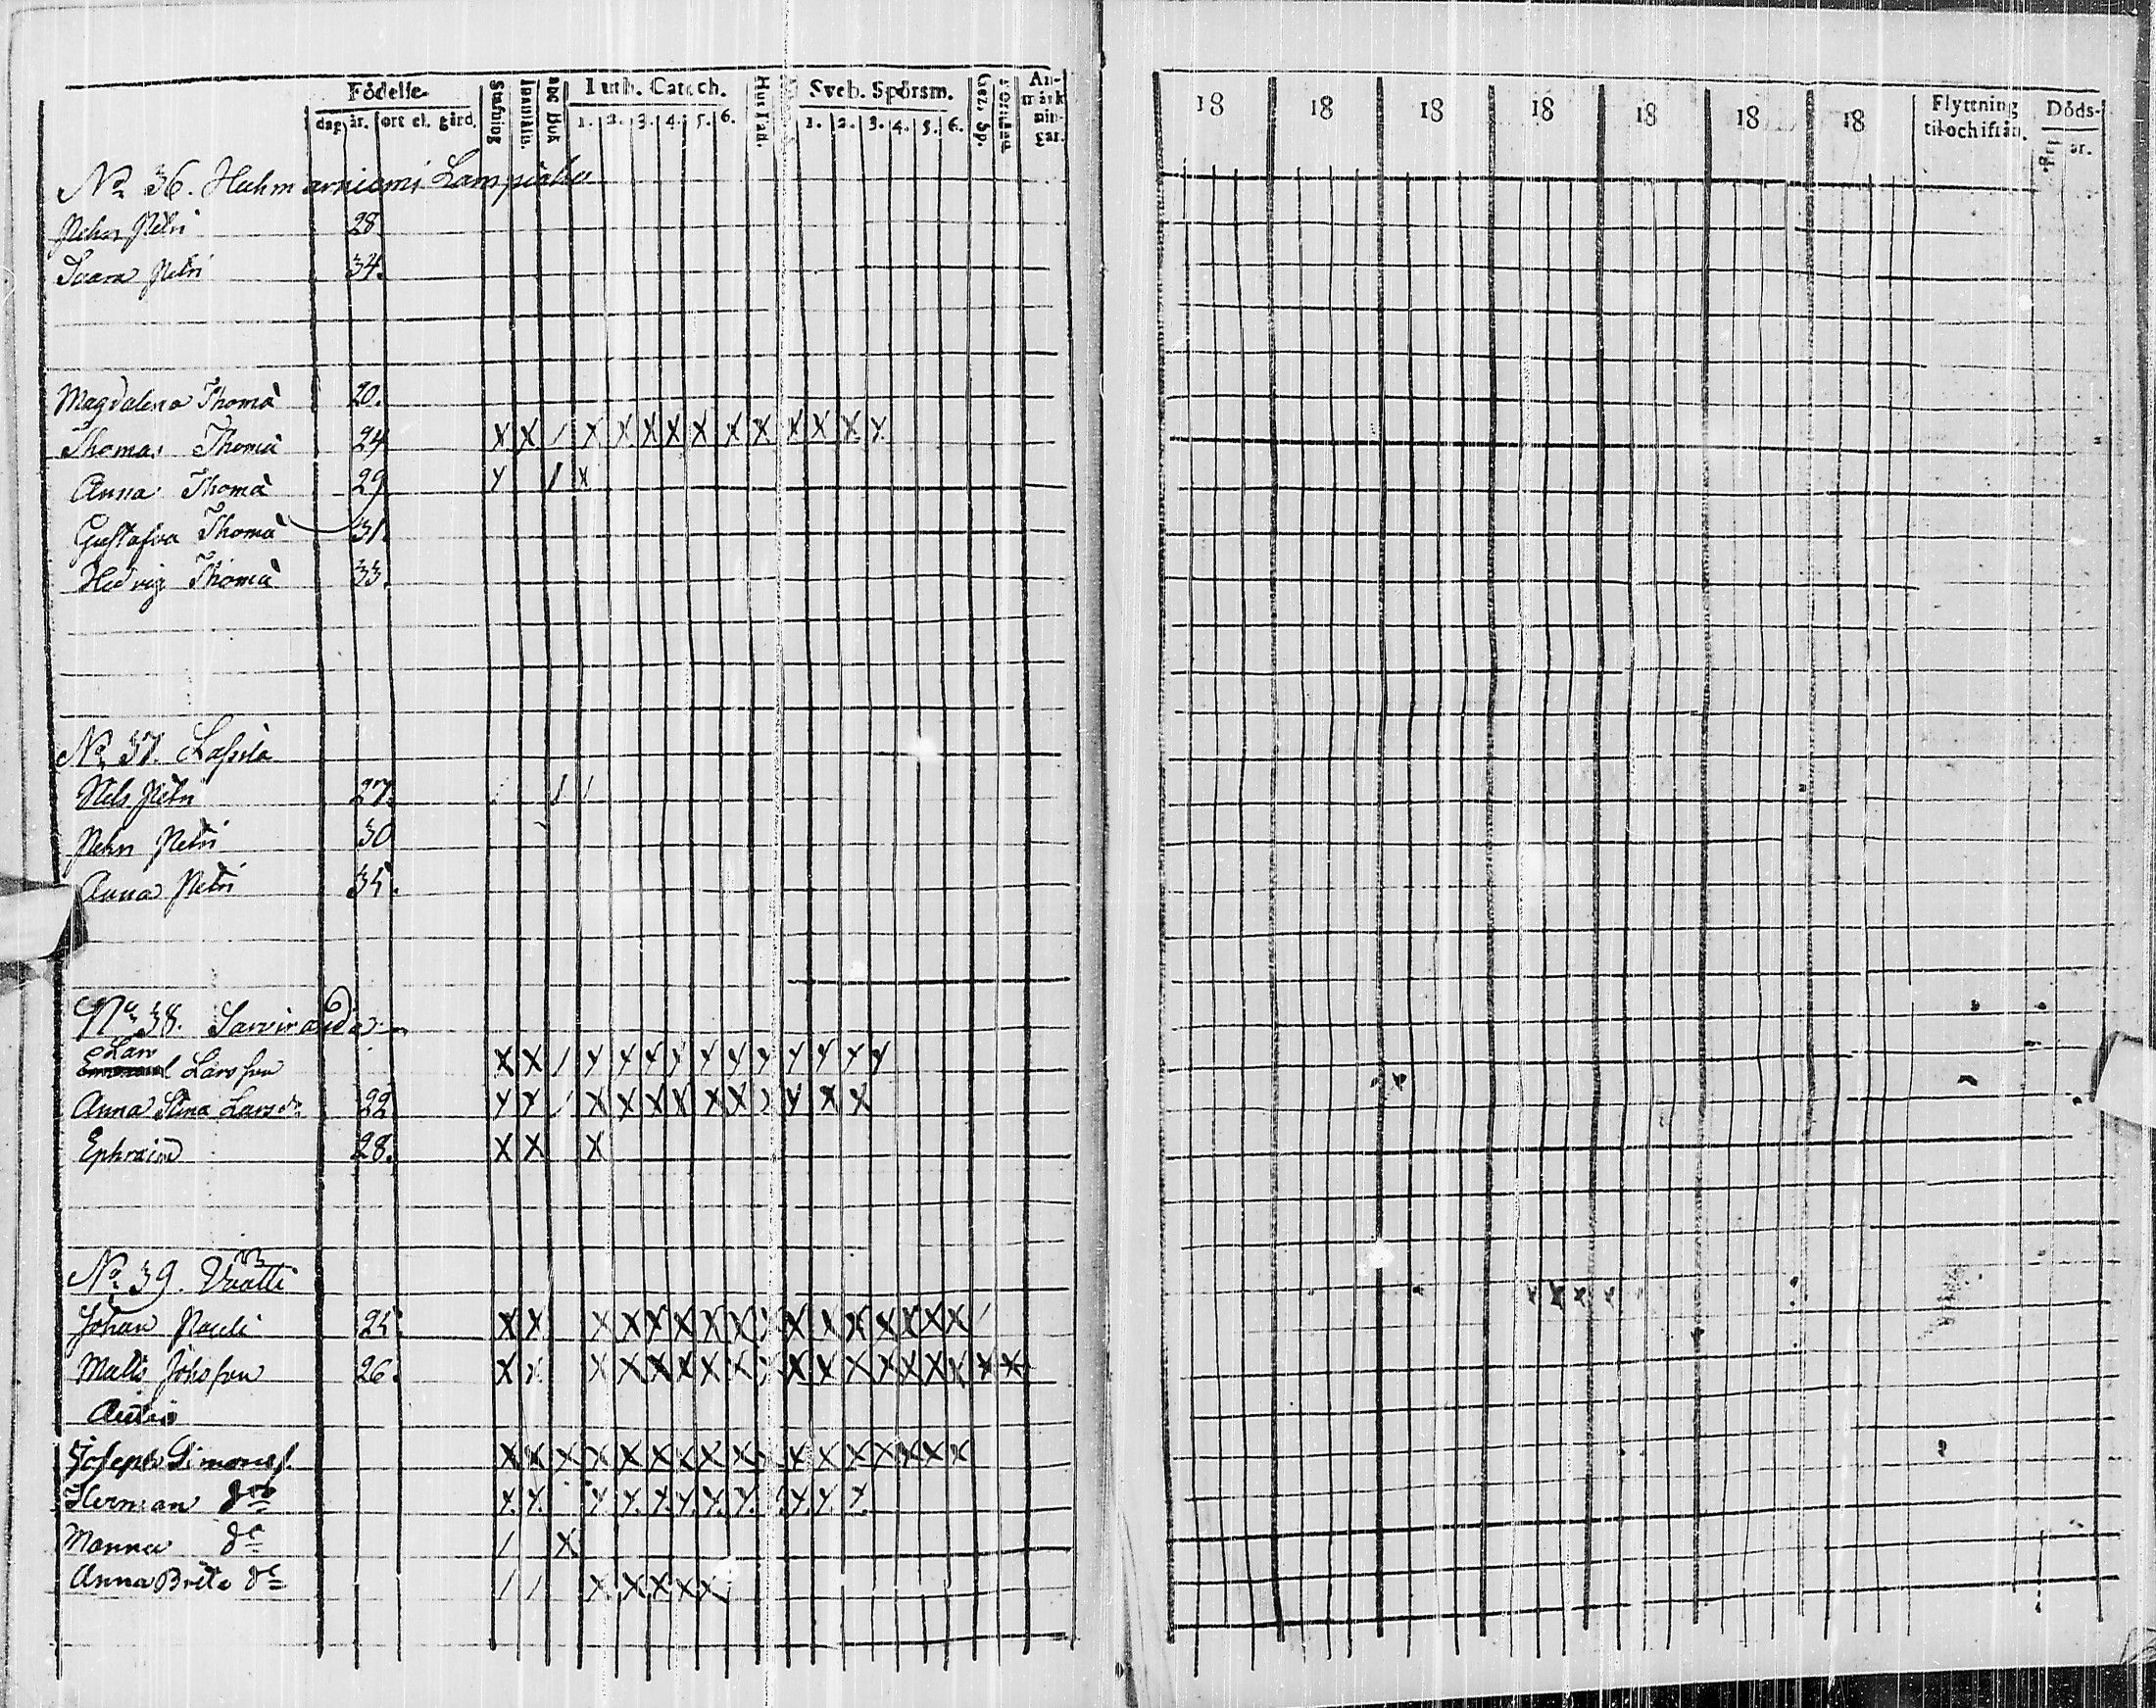 Födelse-
dag år. ort el. gård.
Stafning
Innanläs.
abc Bok
Luth. Catech.
1. 2. 3. 4. 5. 6.
Hus Taf.
Sveb. Spörsm.
1. 2. 3. 4. 5. 6.
Gez. Sp.
Förstånd
An-
märk
nin-
gar.
18 18 18 18 18 18 18
Flyttning
til och ifrån.
Döds-
dag år.
No 36. Huhmarniemi
Pehr Petri 28.
Petri 34.
Magdalena Thomæ 20.
Thomas Thomæ 24 X X / X X X X X X X X X X X
Anna Thomæ 29 X / X
Gustafva Thomæ 31.
Hedvig Thomæ 33.
No 37. Lassila
Nils Petri 27. / /
Pehr Petri 30
Anna Petri
No 38.
Lars
Larsson X X / X X X X X X X X X X X
Anna Stina Larsdr 22 X X / X X X X X X X X X
Ephraim 28. X X X
No 39.
Johan Pauli 25. X X X X X X X X X X X X X X X /
Matts Johsson 26. X X X X X X X X X X X X X X X X X
Autio
Joseph Simonss. X X X X X X X X X X X X X X X
Herman do X X X X X X X X X X X
Manna do / X
Anna Brita do / / X X X X X